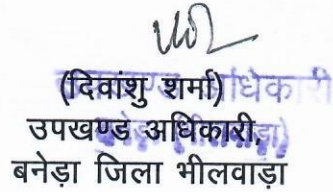 (दिवांशु शर्मा)
उपखण्ड अधिकारी,
बनेड़ा जिला भीलवाड़ा